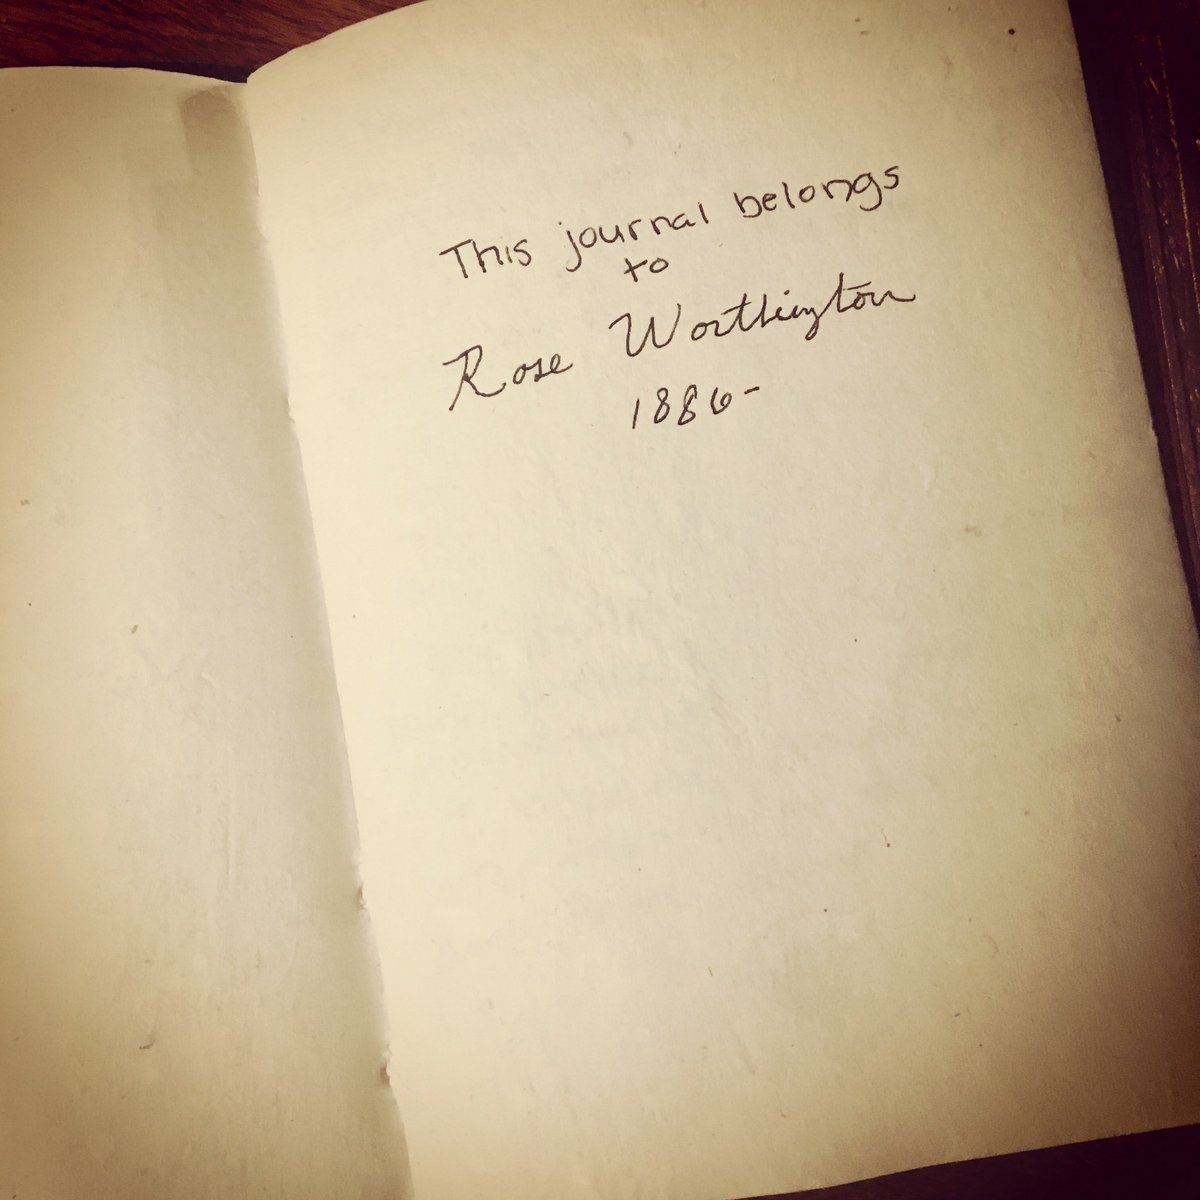 This journal belongs
to
Rose Worthington
1886-